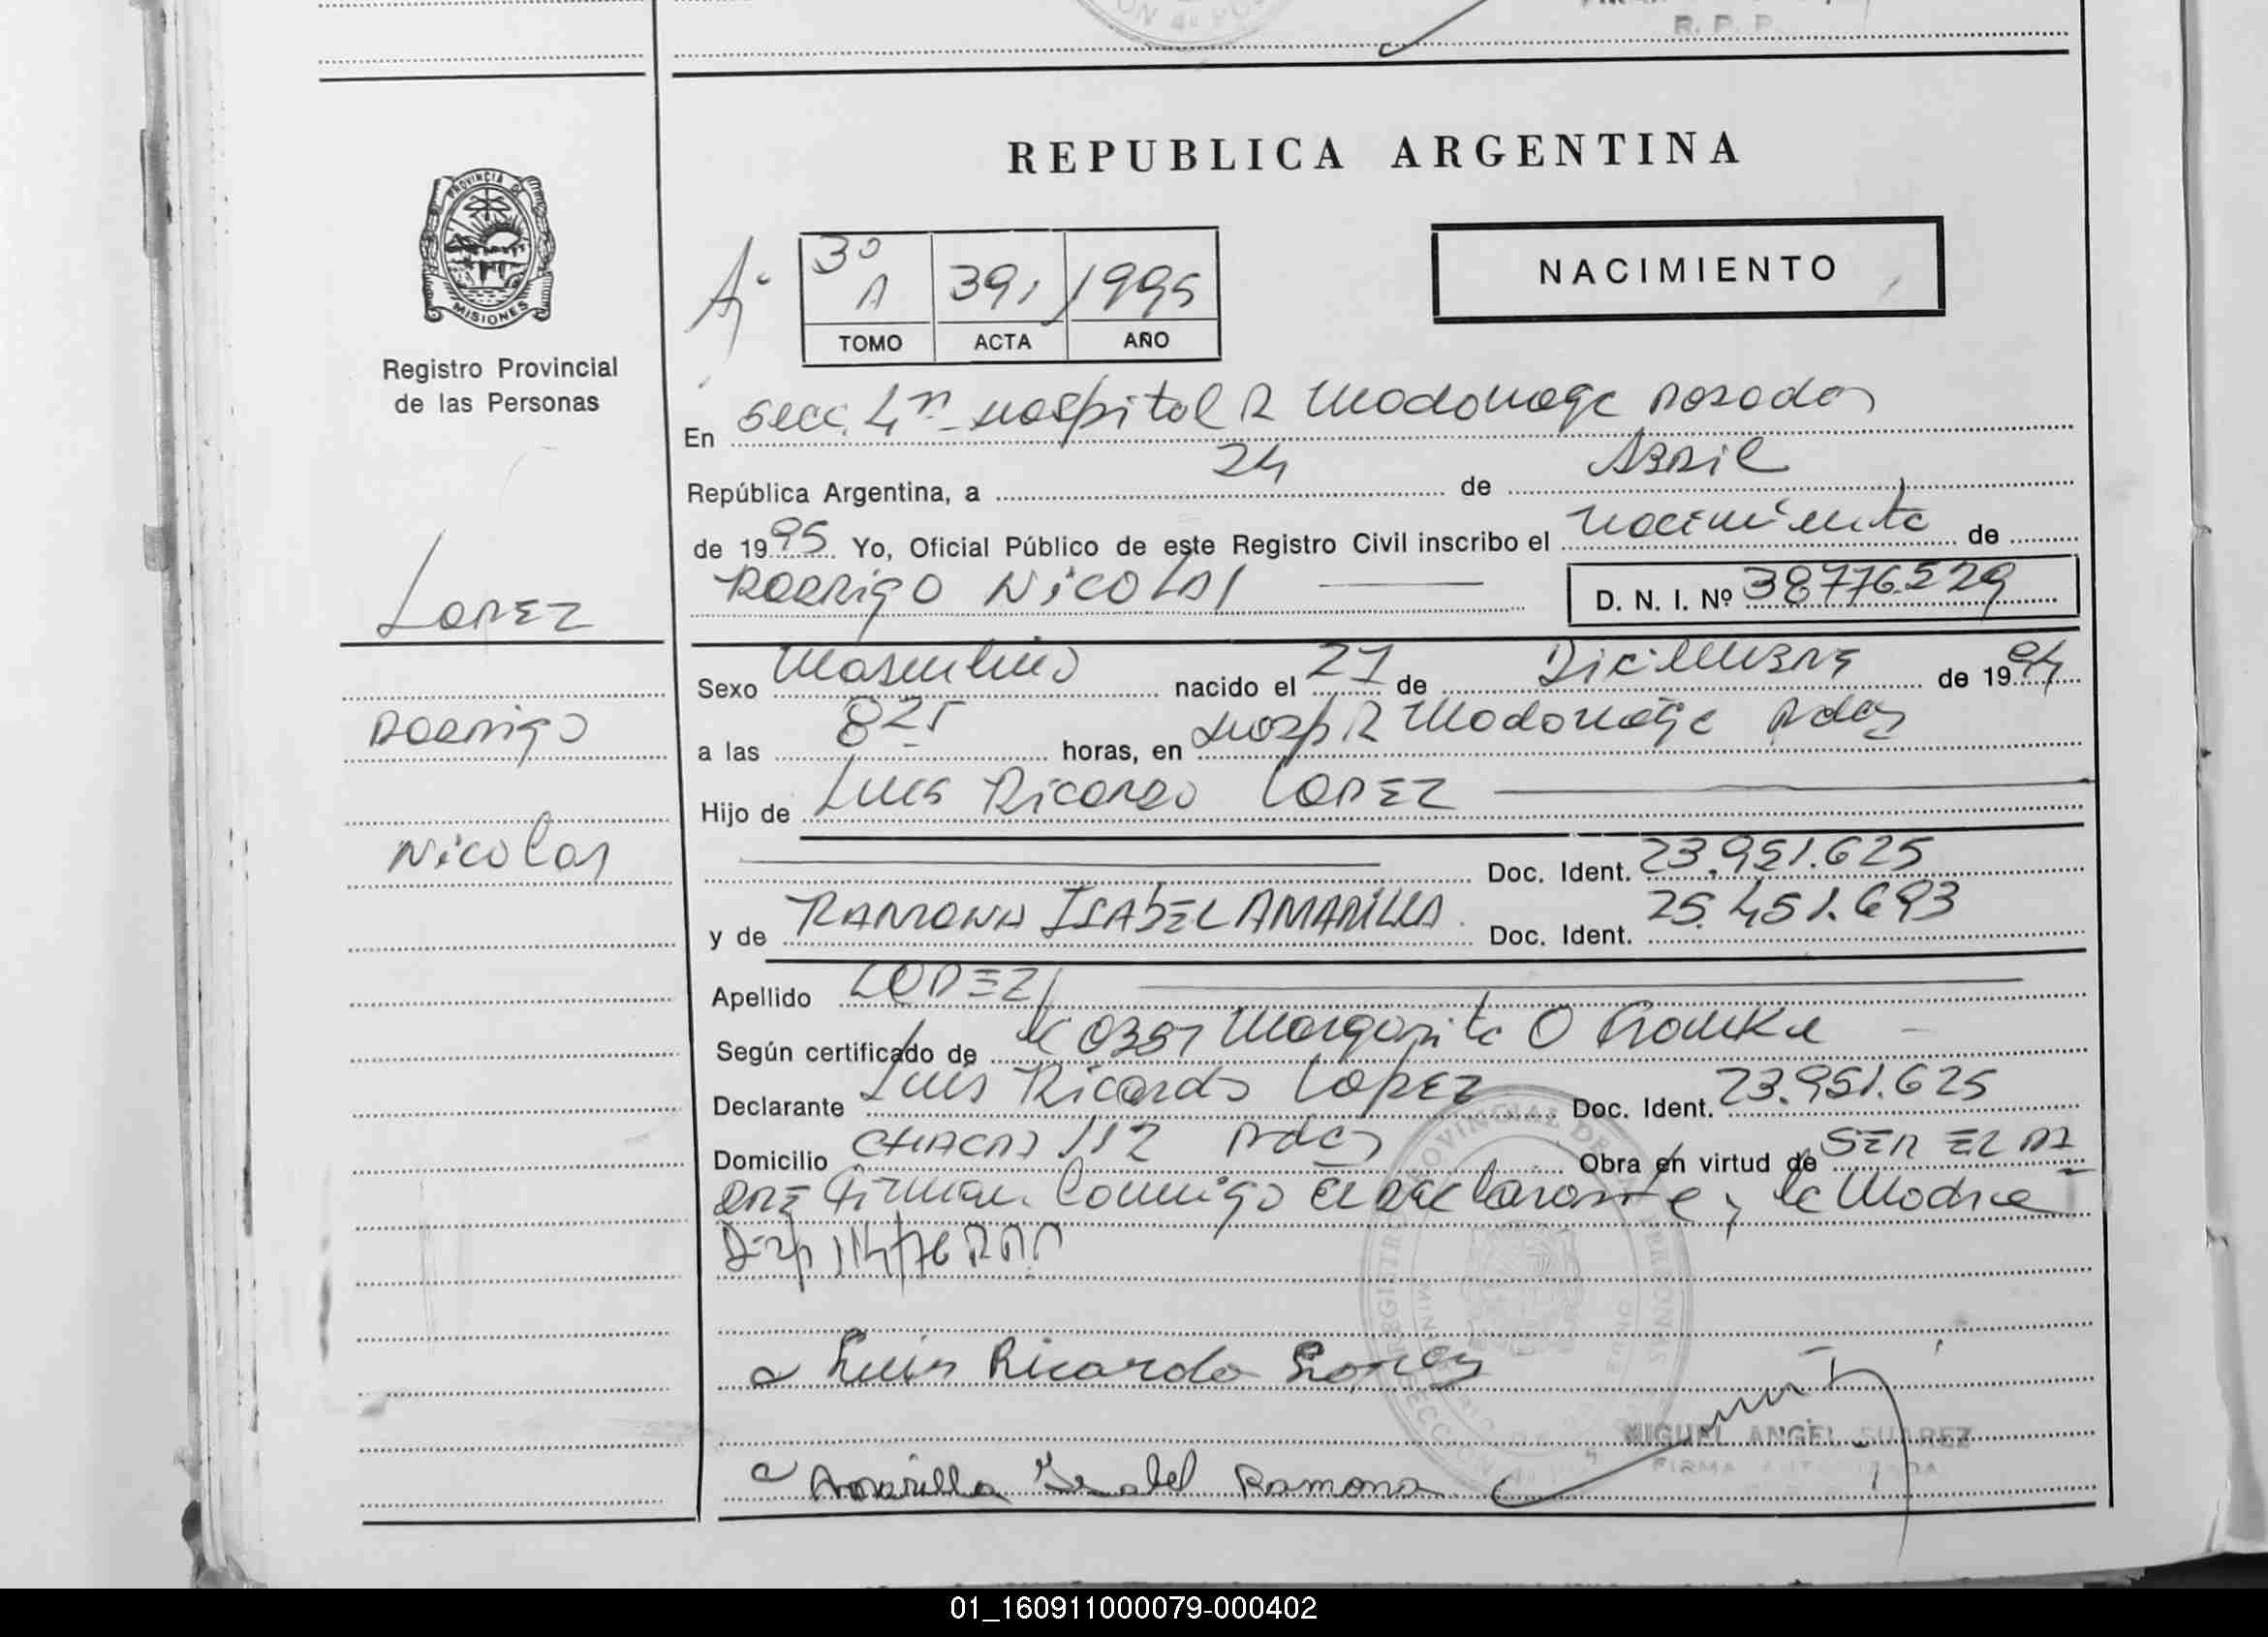 R. P. P.
REPUBLICA ARGENTINA
PROVINCIA DE
MISIONES
Registro Provincial
de las Personas
3º A 391 1995
TOMO ACTA AÑO
NACIMIENTO
En Secc. 4ª Hospital R Madariaga Posadas
República Argentina, a 24 de Abril
de 1995 Yo, Oficial Público de este Registro Civil inscribo el nacimiento de
RODRIGO NICOLAS D. N. I. Nº 38776.529
LOPEZ
Rodrigo
Nicolas
Sexo Masculino nacido el 21 de Diciembre de 1994
a las 825 horas, en Hosp R Madariaga Pdas
Hijo de Luis Ricardo LOPEZ
Doc. Ident. 23.951.625
y de RAMONA ISABEL AMARILLA Doc. Ident. 25.451.693
Apellido LOPEZ
Según certificado de Margarita O
Declarante Luis Ricardo LOPEZ Doc. Ident. 23.951.625
Domicilio CHACRA 112 Pdas Obra en virtud de SER EL PA
DRE Firman Conmigo el declarante y la Madre
114/76
Luis Ricardo Lopez
MIGUEL ANGEL SUAREZ
FIRMA AUTORIZADA
Amarilla Isabel Ramona
01_160911000079-000402